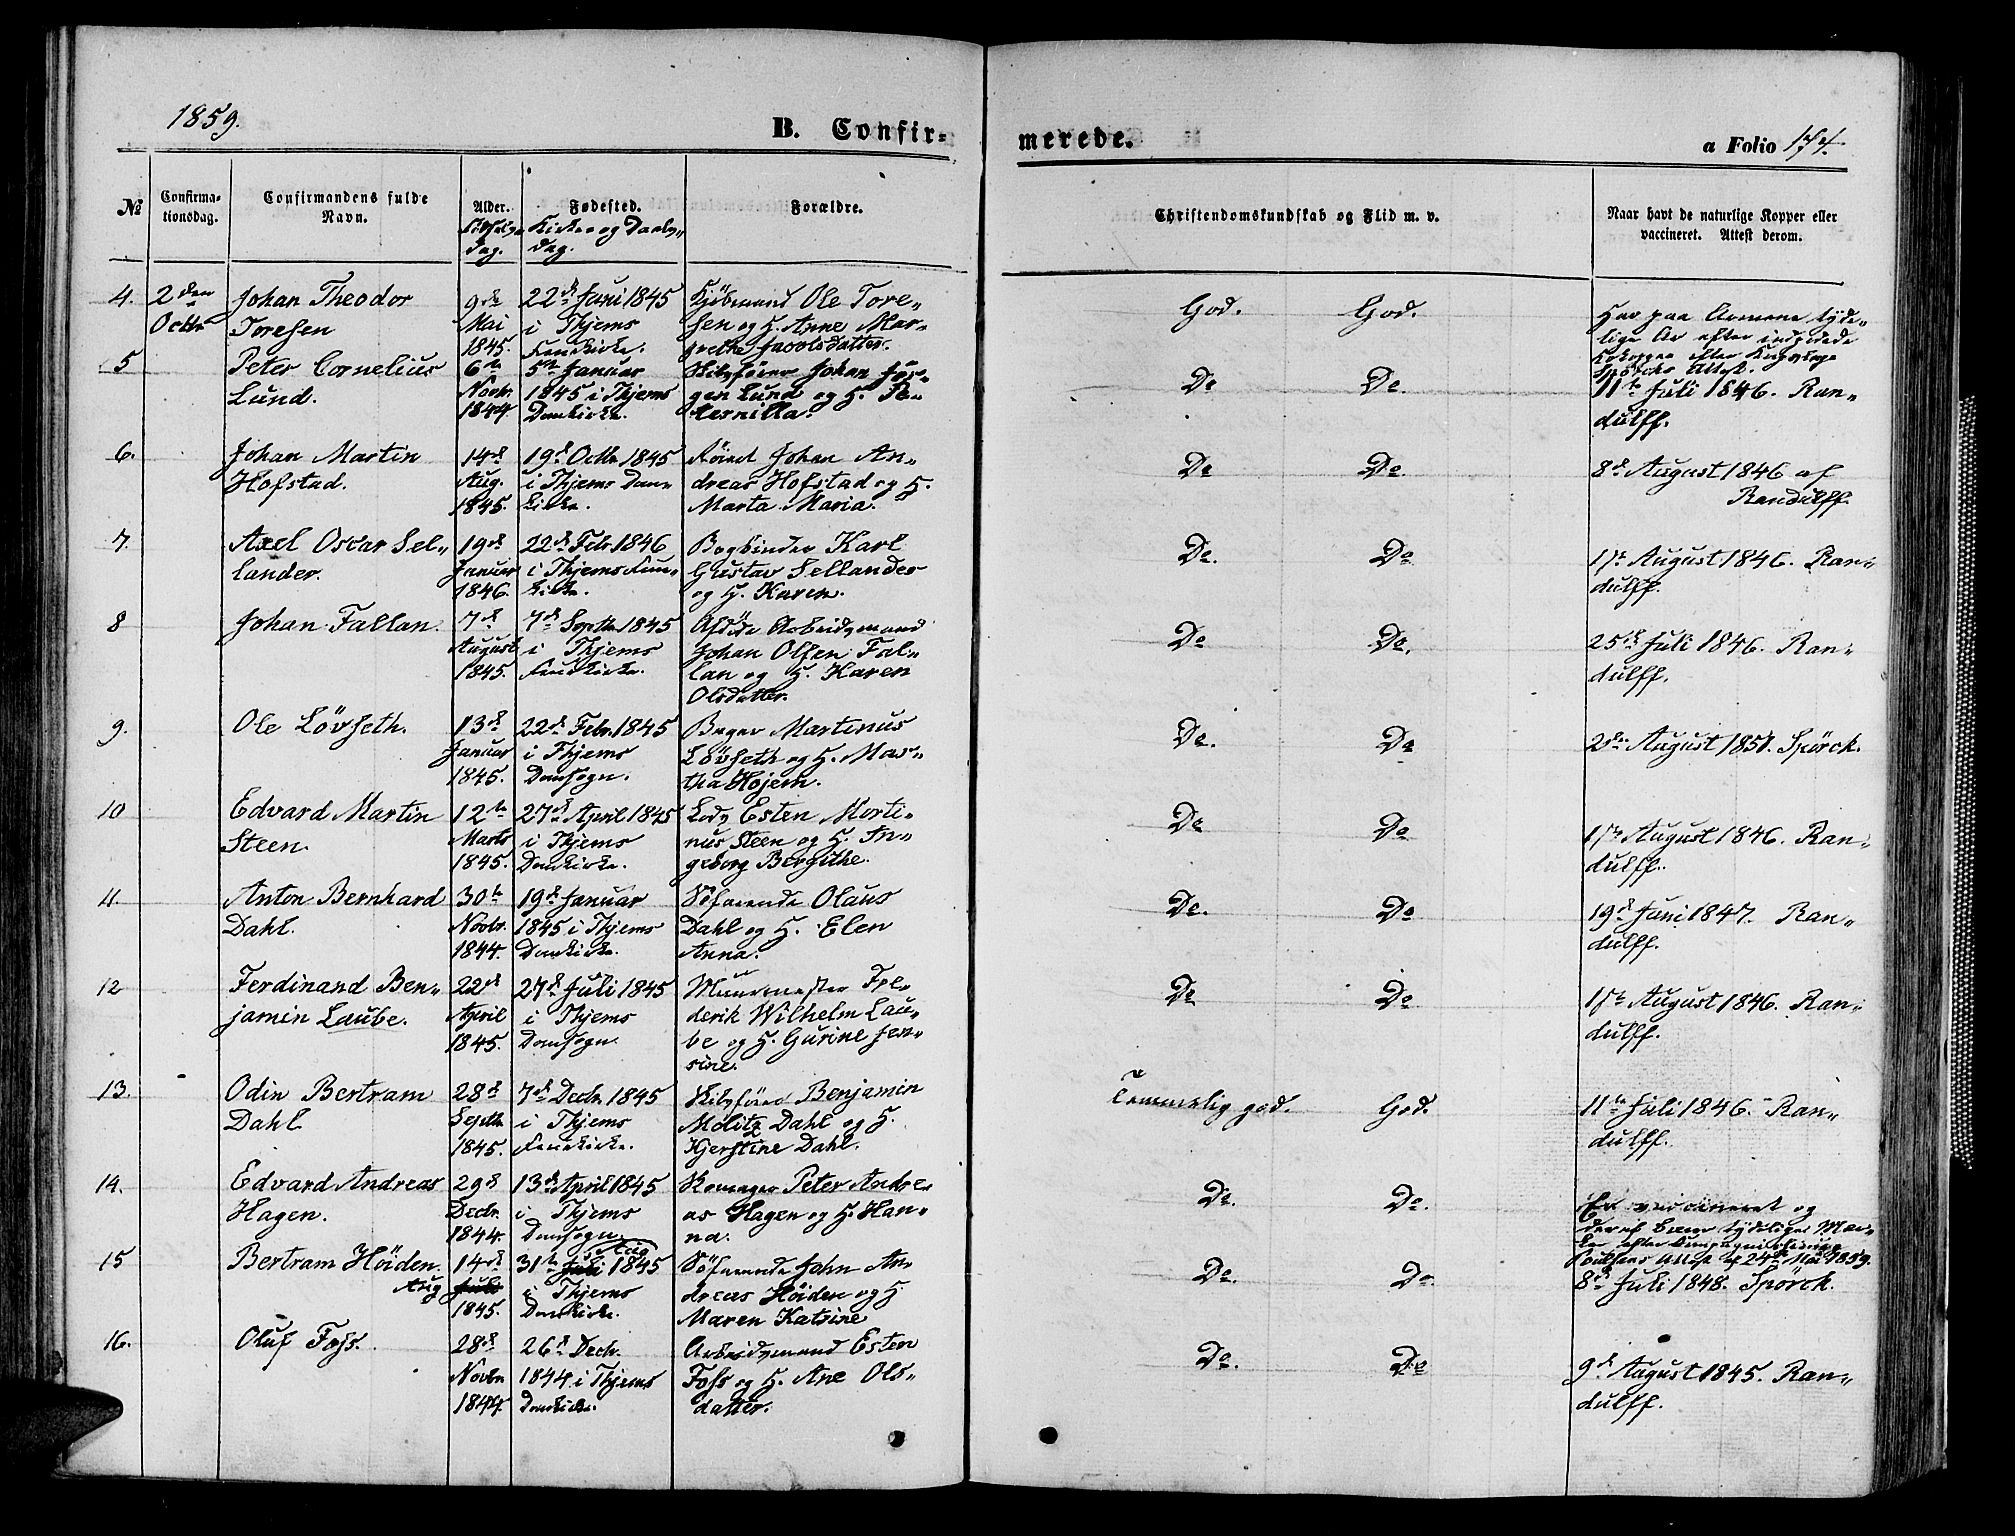 1859.
B. Confir-
merede.
a Folio 174.
No
Confirma-
tionsdag.
Confirmandens fulde
Navn.
Alder.
Fødselsdag.
Fødested.
Kirke og Daabs-
dag.
Forældre.
Christendomskundskab og Flid m. v.
Naar havt de naturlige Kopper eller
vaccineret. Attest derom.
4. 2den
Octbr
Johan Theodor
Toresen
9de
Mai
1845.
22de Juni 1845
i Thjems
Fruekirke.
Kjøbmand Ole Tore-
sen og H. Anne Mar-
grethe Jacobsdatter.
God. God.
Har paa Armene tyde-
lige Ar efter indpodede
Kokopper efter
Spörcks Attest.
5
Peter Cornelius
Lund.
6te
Novbr.
1844.
5te Januar
1845 i Thjems
Domkirke.
Skibsfører Johan Jør-
gen Lund og H. Pe-
ternilla.
Do Do.
11te Juli 1846. Ran-
dulff.
6.
Johan Martin
Hofstad.
14de
Aug.
1845.
19de Octbr 1845
i Thjems Dom-
kirke.
Johan An-
dreas Hofstad og H.
Marta Maria.
Do Do.
8de August 1846 af
Randulff.
7.
Axel Oscar Sel-
lander.
19de
Januar
1846.
22de Febr. 1846
i Thjems Frue-
kirke.
Bogbinder Karl
Gustav Sellander
og H. Karen.
Do. Do
17de August 1846. Ran-
dulff.
8
Johan Fallan.
7de
August
1845.
7de Septbr 1845
i Thjems
Fruekirke.
Afdøde Arbeidsmand
Johan Olsen Fal-
lan og H. Karen
Olsdatter.
Do Do.
25de Juli 1846. Ran-
dulff.
9.
Ole Lövseth.
13de
Januar
1845.
22de Febr. 1845
i Thjems
Domsogn.
Bager Martinus
Lövseth og H. Mar-
tha Hojem.
Do. Do
2den August 1851. Spörck.
10
Edvard Martin
Steen.
12te
Marts
1845.
27de April 1845
i Thjems
Domkirke.
Lods Esten Morti-
nus Steen og H. In-
geborg Bergithe.
Do Do
17de August 1846. Ran-
dulff.
11.
Anton Bernhard
Dahl.
30te
Novbr.
1844.
19de Januar
1845 i Thjems
Domkirke.
Søfarende Olaus
Dahl og H. Elen
Anna.
Do. Do
19de Juni 1847. Ran-
dulff.
12
Ferdinand Ben-
jamin Laube.
22de
April
1845.
27de Juli 1845
i Thjems
Domsogn.
Muurmester Fre-
derik Wilhelm Lau-
be og H. Gurine Jen-
sine.
Do Do
17de August 1846. Ran-
dulff.
13.
Odin Bertram
Dahl
28de
Septbr
1845.
7de Decbr. 1845
i Thjems
Fruekirke.
Skibsfører Benjamin
Molitz Dahl og H.
Kjerstine Dahl.
Temmelig god. God.
11te Juli 1846. Ran-
dulff.
14.
Edvard Andreas
Hagen.
29de
Decbr.
1844.
13de April 1845
i Thjems
Domsogn.
Peter Andre-
as Hagen og H. Han-
na.
Do. Do.
Er vaccineret og
deraf bærer tydelige Mær-
ker efter
Poulsens Attest af 24de Mai 1859.
15
Bertram Höiden.
14de
Aug Juli
1845.
31te Juli Aug 1845
i Thjems
Domkirke.
Søfarende John An-
dreas Höiden og H.
Maren Katrine
Do. Do.
8de Juli 1848. Spörck.
16.
Oluf Foss.
28de
Novbr
1844.
26de Decbr.
1844 i Thjems
Domkirke.
Arbeidsmand Esten
Foss og H. Ane Ols-
datter.
Do. Do
9de August 1845. Ran-
dulff.